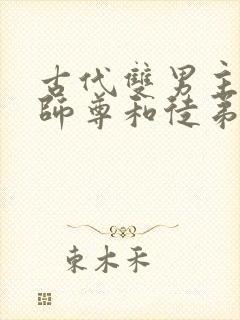 古代雙男主
師尊和徒弟
東木禾